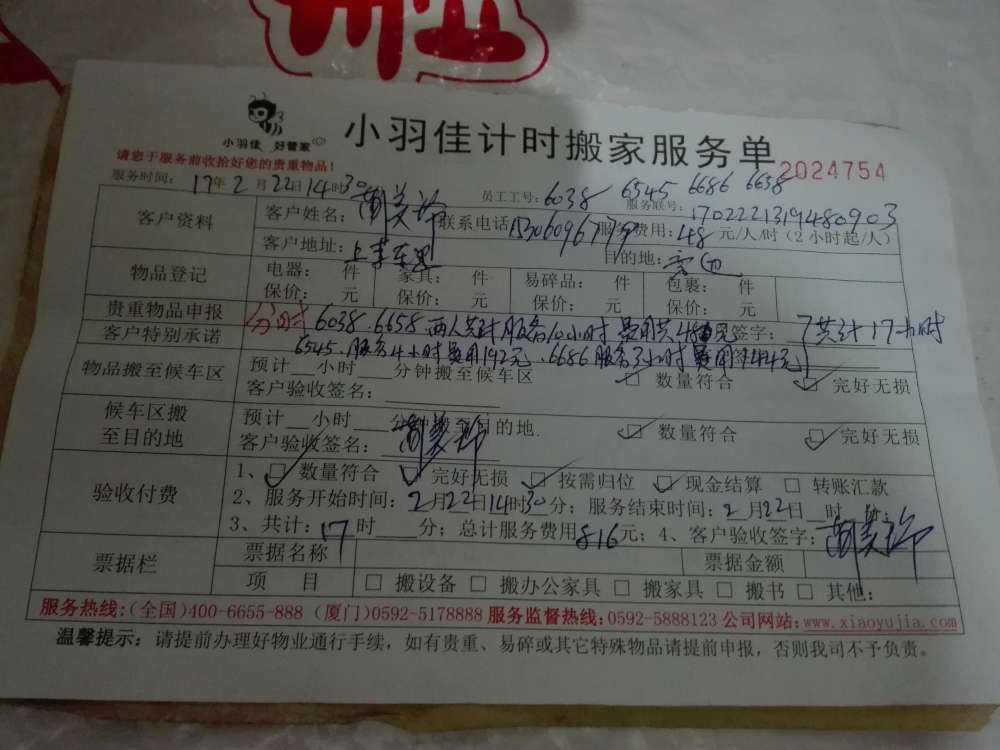 小羽佳 好管家
小羽佳计时搬家服务单
2024754
请您于服务前收拾好您的贵重物品！
服务时间： 17年2月22日14时30
员工工号：6038 6545 6686 6638
服务联号：1702221319480903
客户资料
客户姓名： 联系电话 服务费用：48元/人/时（2小时起/人）
客户地址： 目的地：
物品登记
电器： 件 家具： 件 易碎品： 件 包裹： 件
保价： 元 保价： 元 保价： 元 保价： 元
贵重物品申报
分时 6038.6658两人共计服务10小时 费用共 签字： 共计17小时
客户特别承诺
6545.服务4小时费用192元.6686服务3小时费用144元
物品搬至候车区
预计__小时__分钟搬至候车区 ☑ 数量符合 ☑ 完好无损
客户验收签名：
候车区搬至目的地
预计__小时__分钟搬至目的地. ☑ 数量符合 ☑ 完好无损
客户验收签名：
验收付费
1、☑ 数量符合 ☑ 完好无损 ☑ 按需归位 ☑ 现金结算 □ 转账汇款
2、服务开始时间：2月22日14时30分；服务结束时间：2月22日__时__分；
3、共计：17时____分；总计服务费用816元；4、客户验收签字：
票据栏
票据名称 票据金额
项 目 □ 搬设备 □ 搬办公家具 □ 搬家具 □ 搬书 □ 其他：
服务热线：（全国）400-6655-888 （厦门）0592-5178888 服务监督热线：0592-5888123 公司网站：www.xiaoyujia.com
温馨提示：请提前办理好物业通行手续，如有贵重、易碎或其它特殊物品请提前申报，否则我司不予负责。